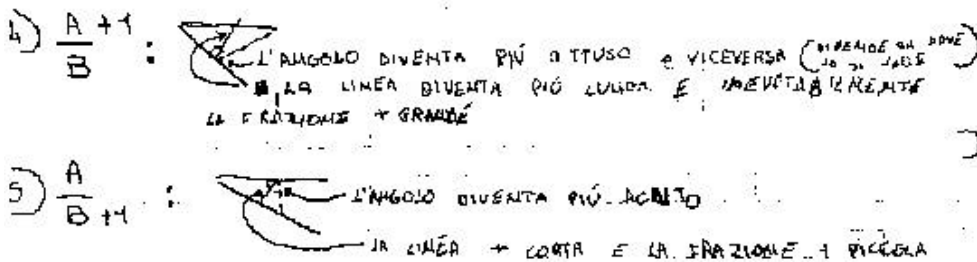 4) A+1
B : L'ANGOLO DIVENTA PIÚ OTTUSO e VICEVERSA (DIPENDE DA DOVE
LA LINEA DIVENTA PIÚ LUNGA E INEVITABILMENTE
LA FRAZIONE + GRANDE
5) A
B+1 : L'ANGOLO DIVENTA PIÚ ACUTO
LA LINEA + CORTA E LA FRAZIONE + PICCOLA